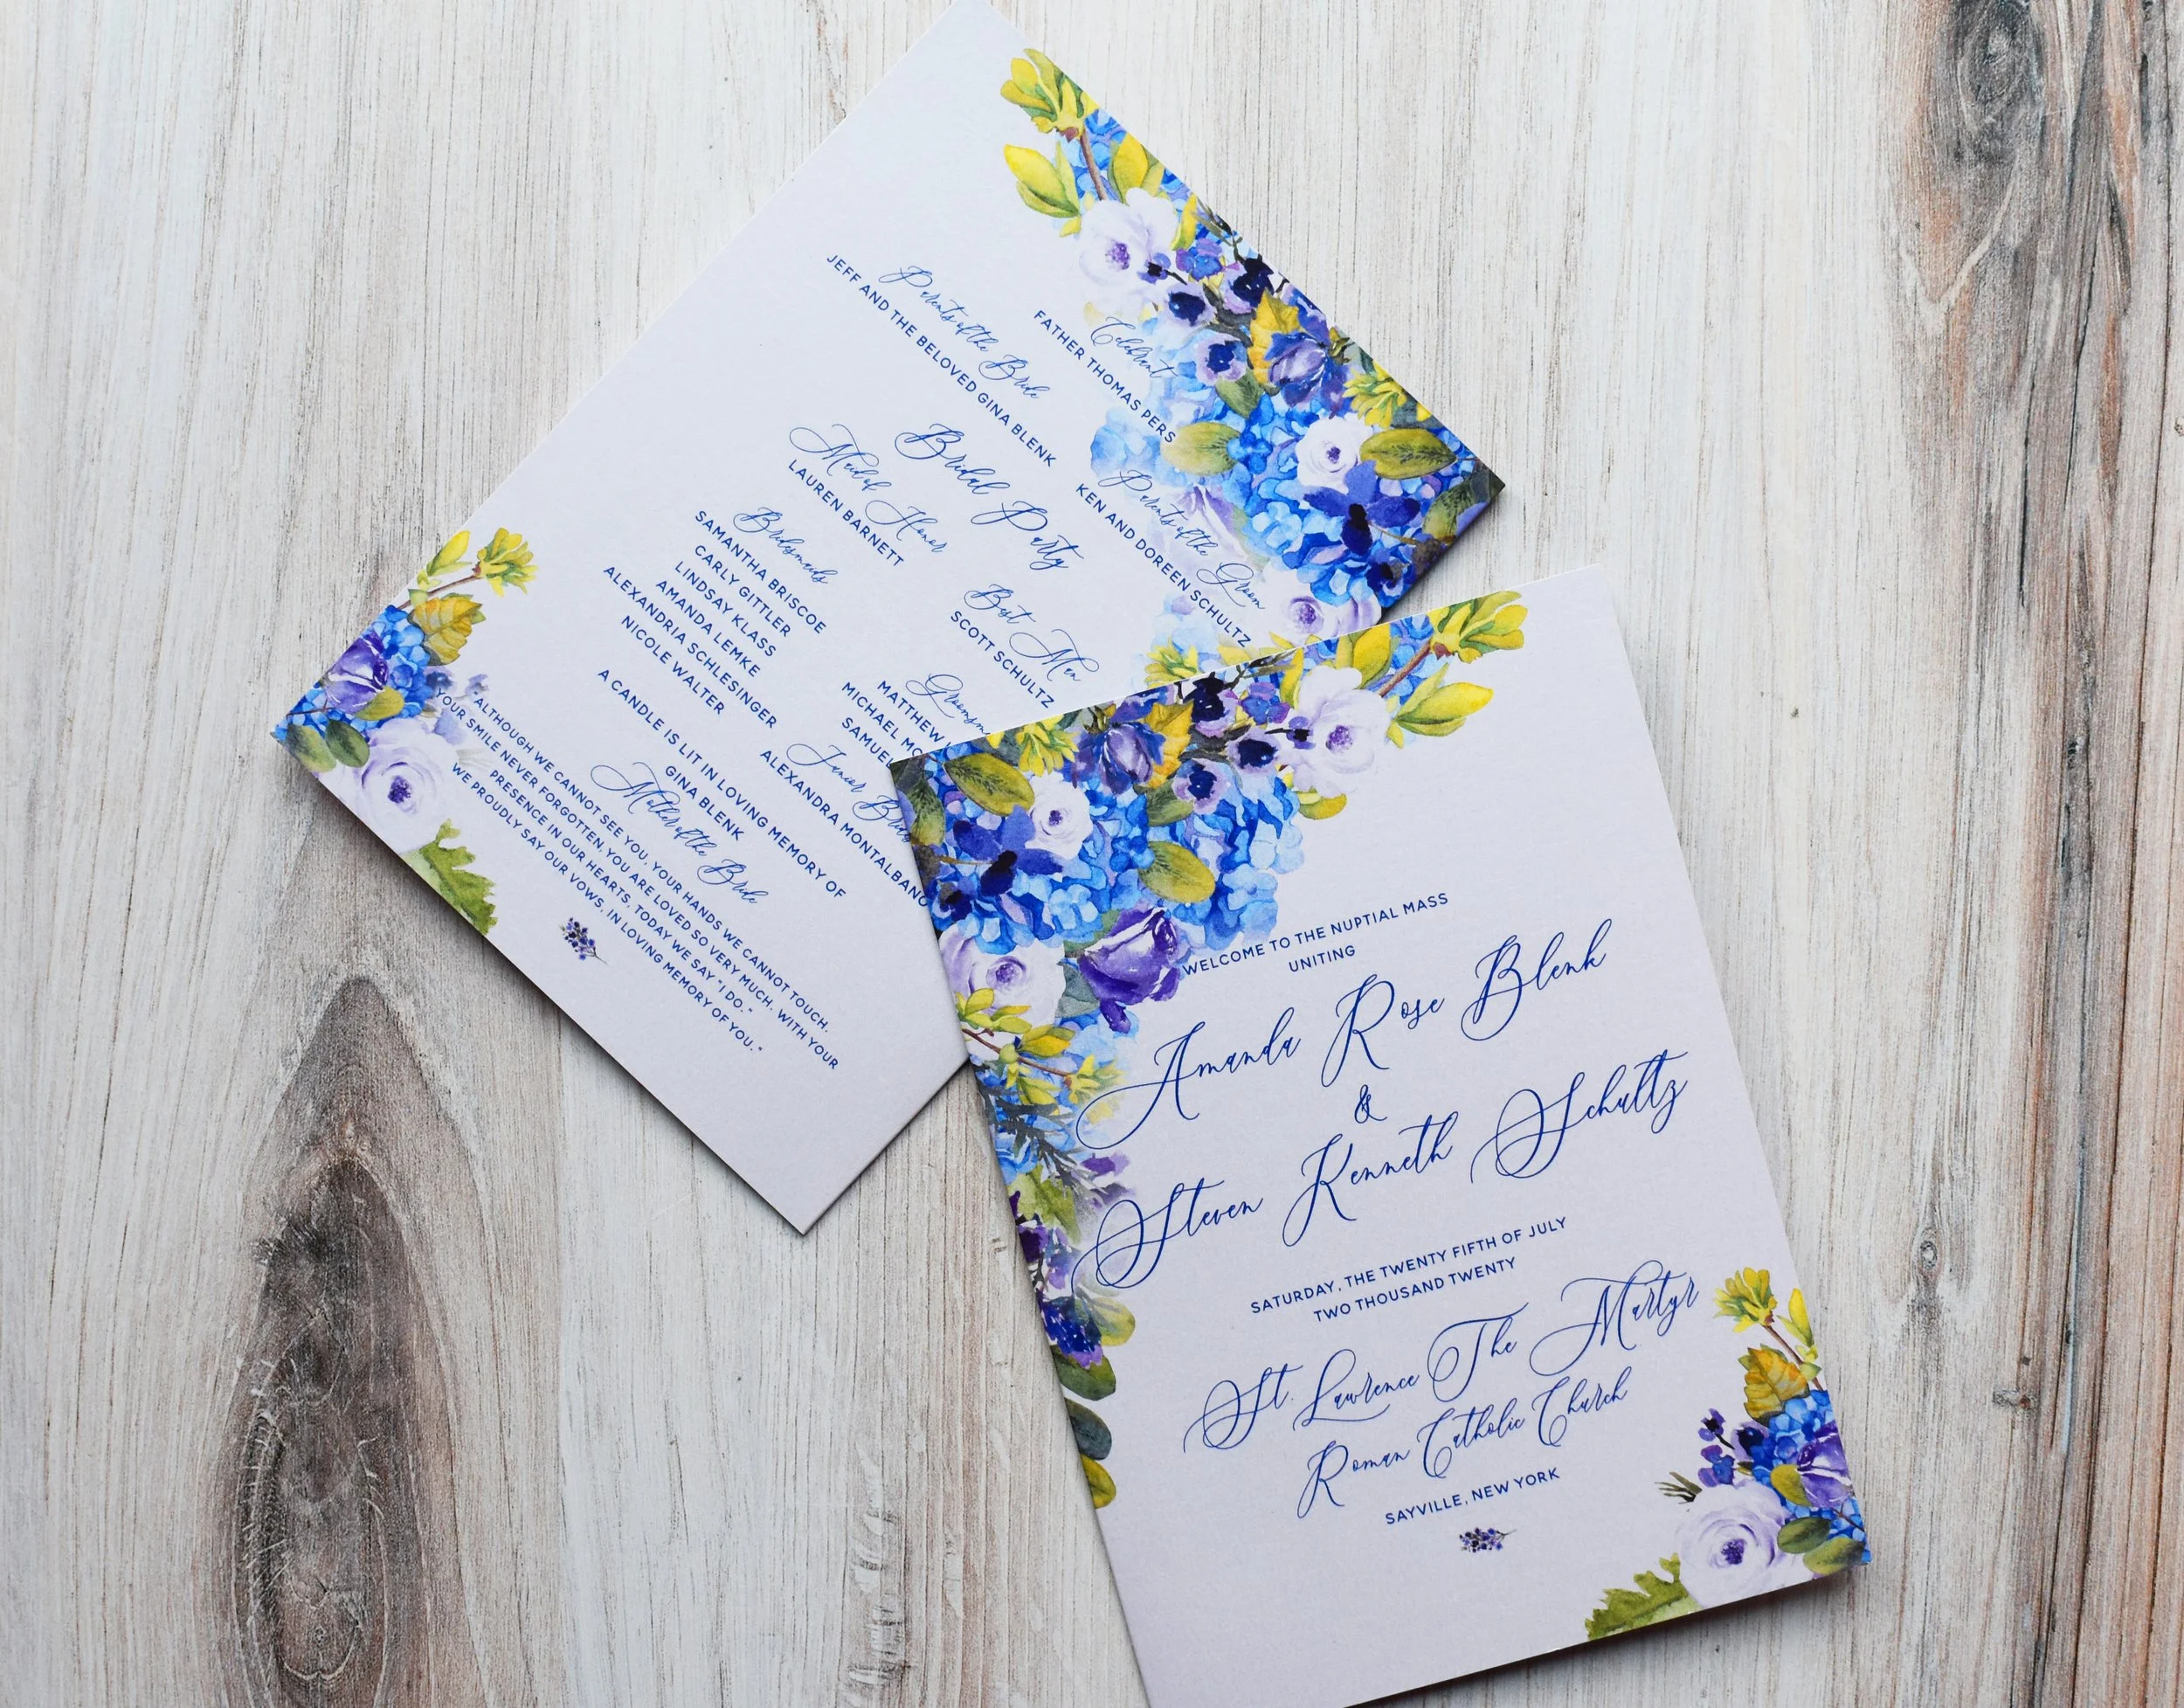 Celebrant
FATHER THOMAS PERS
Parents of the Bride
JEFF AND THE BELOVED GINA BLENK
Parents of the Groom
KEN AND DOREEN SCHULTZ
Bridal Party
Maid of Honor
LAUREN BARNETT
Best Men
SCOTT SCHULTZ
Bridesmaids
SAMANTHA BRISCOE
CARLY GITTLER
LINDSAY KLASS
AMANDA LEMKE
ALEXANDRIA SCHLESINGER
NICOLE WALTER
MATTHEW
MICHAEL
SAMUEL
Junior
ALEXANDRA MONTALBANO
A CANDLE IS LIT IN LOVING MEMORY OF
GINA BLENK
Mother of the Bride
"ALTHOUGH WE CANNOT SEE YOU, YOUR HANDS WE CANNOT TOUCH.
YOUR SMILE NEVER FORGOTTEN, YOU ARE LOVED SO VERY MUCH. WITH YOUR
PRESENCE IN OUR HEARTS, TODAY WE SAY "I DO."
WE PROUDLY SAY OUR VOWS, IN LOVING MEMORY OF YOU."
WELCOME TO THE NUPTIAL MASS
UNITING
Amanda Rose Blenk
&
Steven Kenneth Schultz
SATURDAY, THE TWENTY FIFTH OF JULY
TWO THOUSAND TWENTY
St. Lawrence The Martyr
Roman Catholic Church
SAYVILLE, NEW YORK